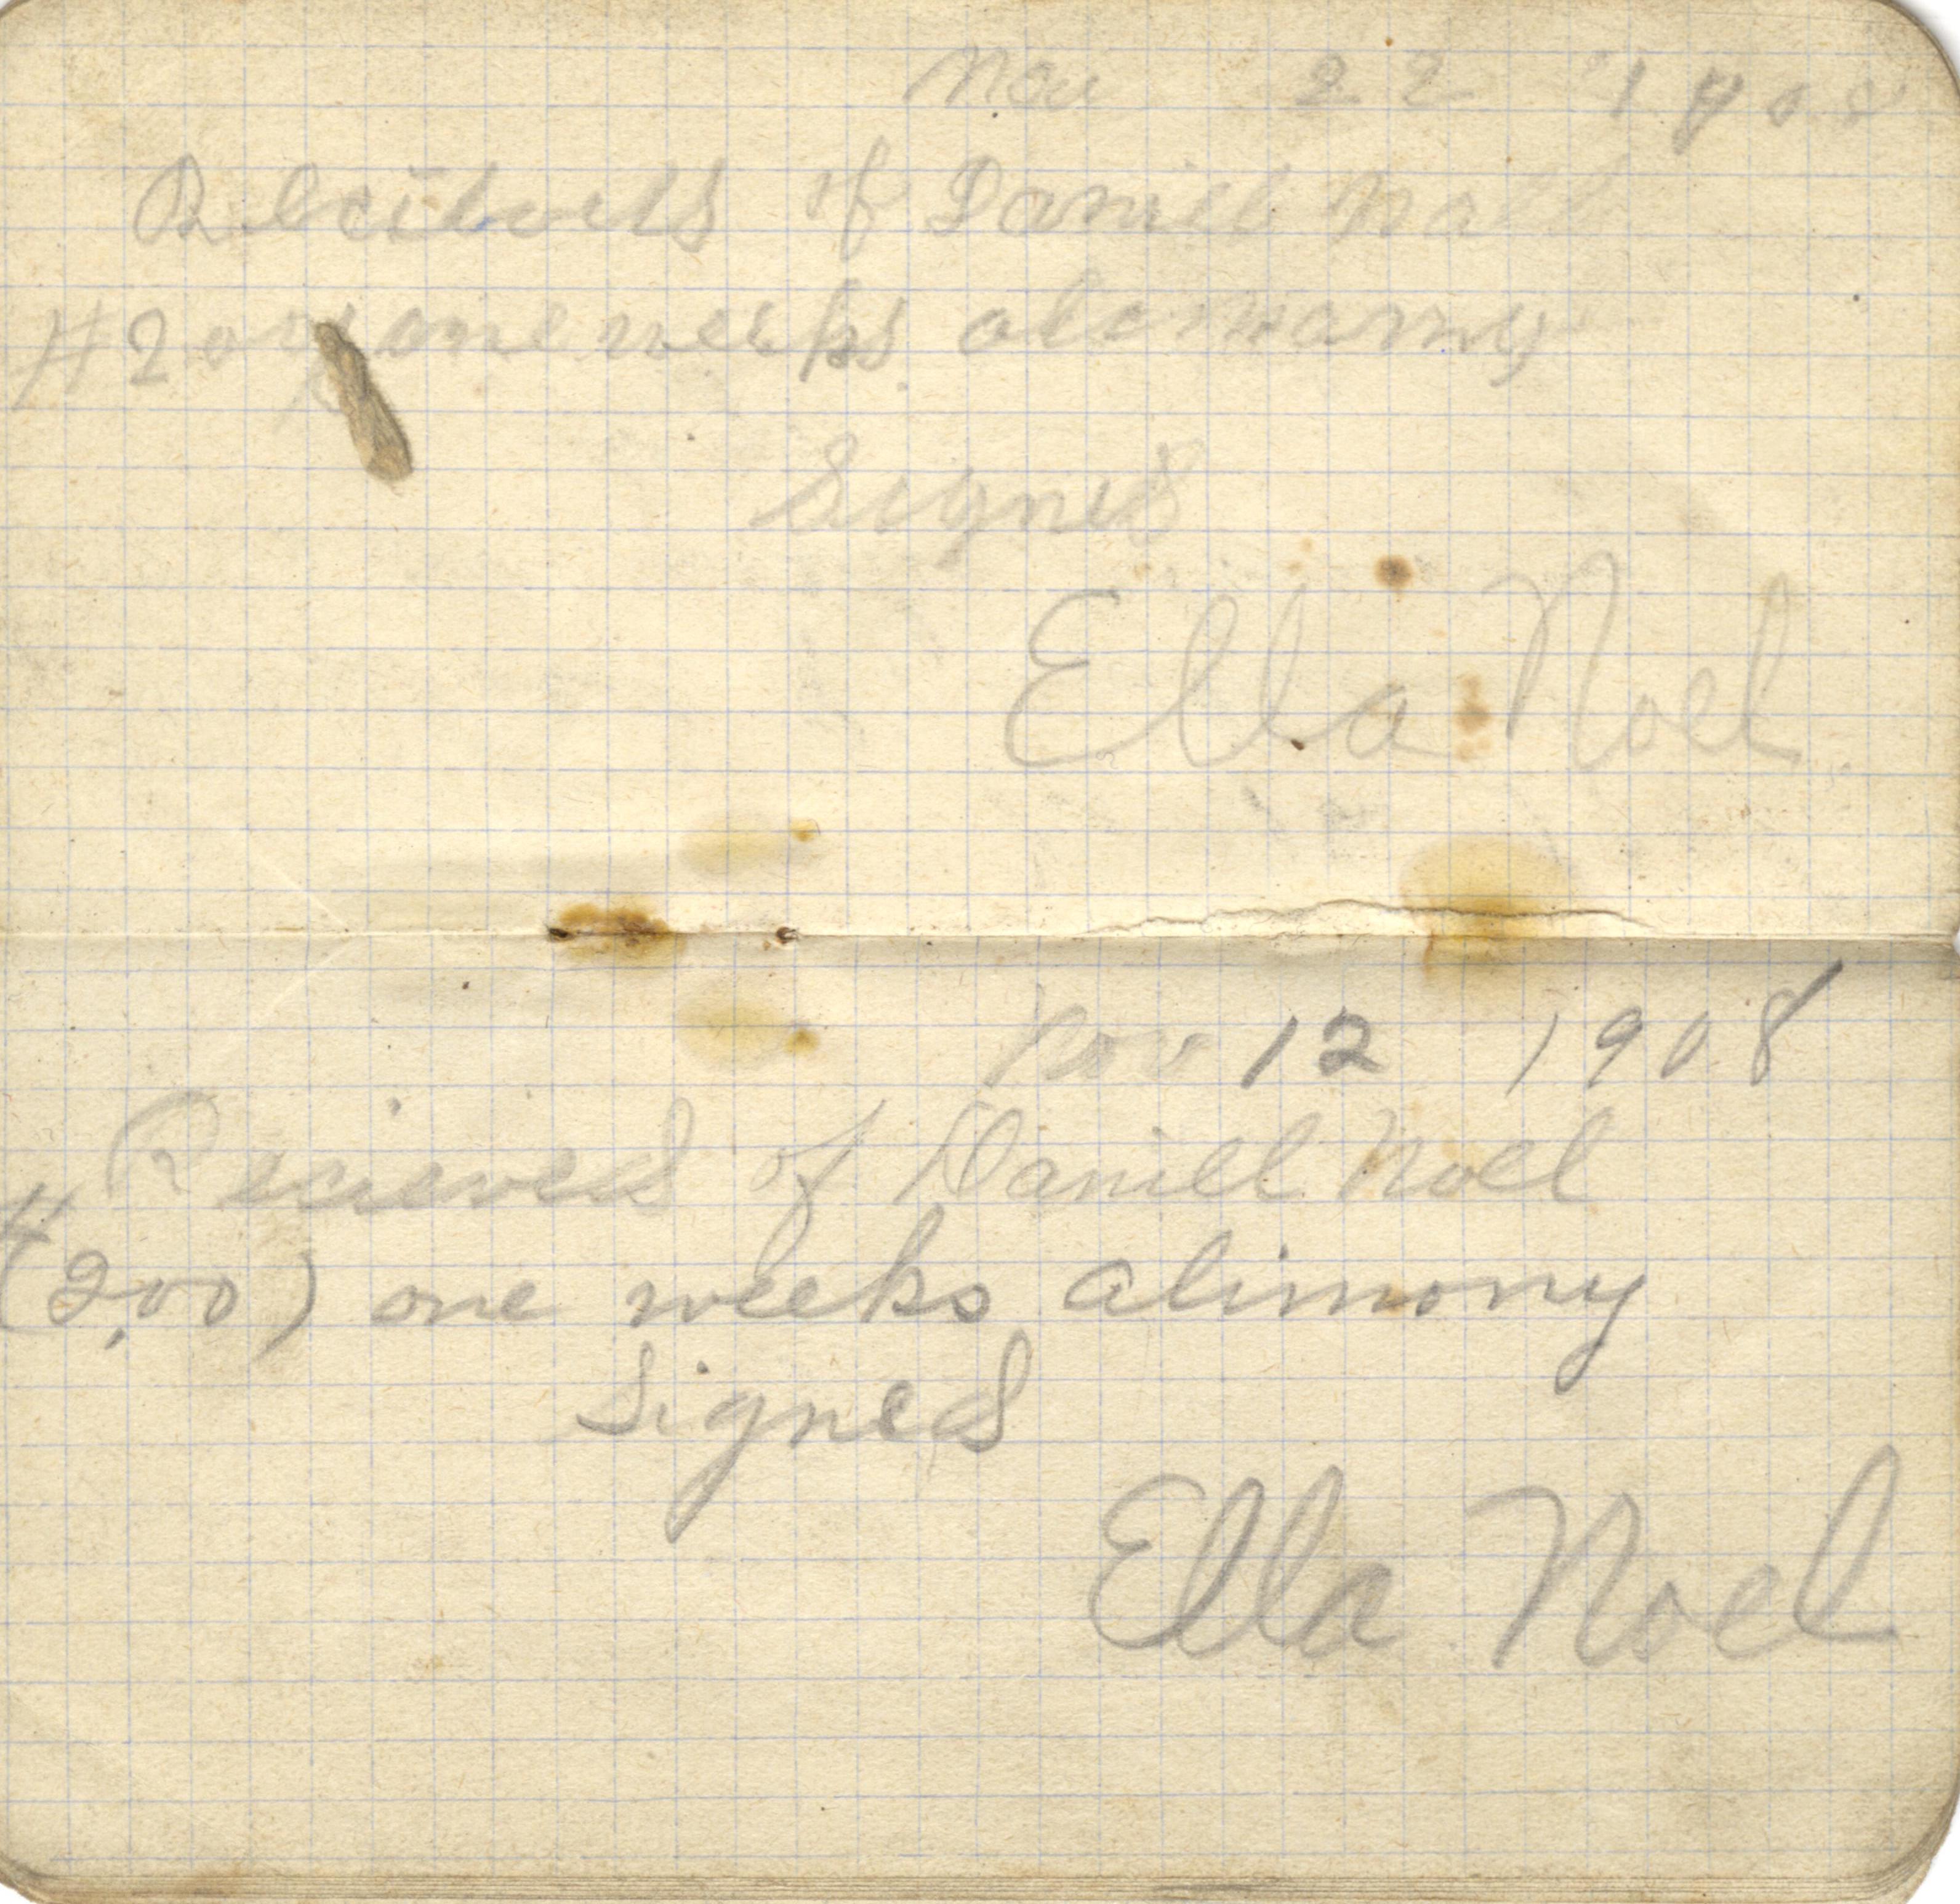 Nov 22 1908
Recieved of Daniel Noel
$2.00 one weeks alimony
Signed
Ella Noel
Nov 12 1908
Recieved of Daniel Noel
$(2.00) one weeks alimony
Signed
Ella Noel